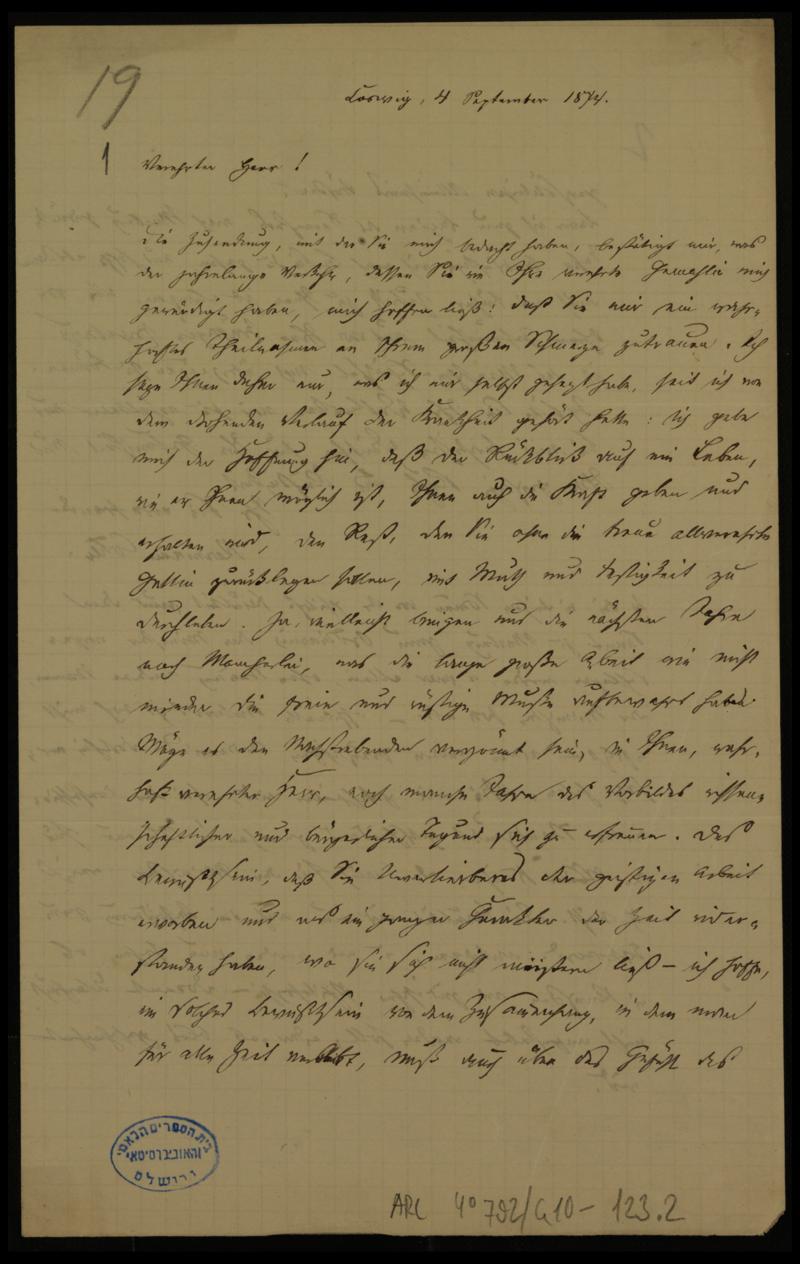 19
Coswig, 4 September 1874.
1 Verehrter Herr!
Die Zusendung, mit der Sie mich bedacht haben, bestätigt mir, was
der jahrelange Verkehr, dessen Sie u Ihre verehrte Gemahlin mich
gewürdigt haben, mich hoffen ließ: daß Sie mir ein wahr-
haftes Theilnehmen an Ihrem großen Schmerze zutrauen. Ich
sage Ihnen daher nur, was ich mir selbst gesagt habe, seit ich von
dem drohenden Verlauf der Krankheit gehört hatte: ich gebe
mich der Hoffnung hin, daß der Rückblick auf ein Leben,
wie er Ihnen möglich ist, Ihnen auch die Kraft geben und
erhalten wird, den Rest, den Sie ohne die treue allverehrte
Gattin zurücklegen sollen, mit Muth und Festigkeit zu
durchleben. Ja, vielleicht bringen uns die nächsten Jahre
noch Mancherlei, was die lange große Arbeit wie nicht
minder die freie und rüstige Muße aufbewahrt haben.
Möge es den Nachstrebenden vergönnt sein, in Ihnen, wahr-
haft verehrter Herr, noch manche Jahre des Vorbildes wissen-
schaftlicher und bürgerlicher Tugend sich zu erfreuen. Das
Bewußtsein, daß Sie Unverlierbares der geistigen Arbeit
erworben und als ein ganzer Charakter der Zeit wider-
standen haben, wo sie sich nicht meistern ließ – ich hoffe,
ein solches Bewußtsein von dem Zusammenhang, in dem man
für alle Zeit verbleibt, muß auch über das Gefühl des
בית הספרים הלאומי
והאוניברסיטאי
ירושלים
ARC 4° 792/G10 - 123.2